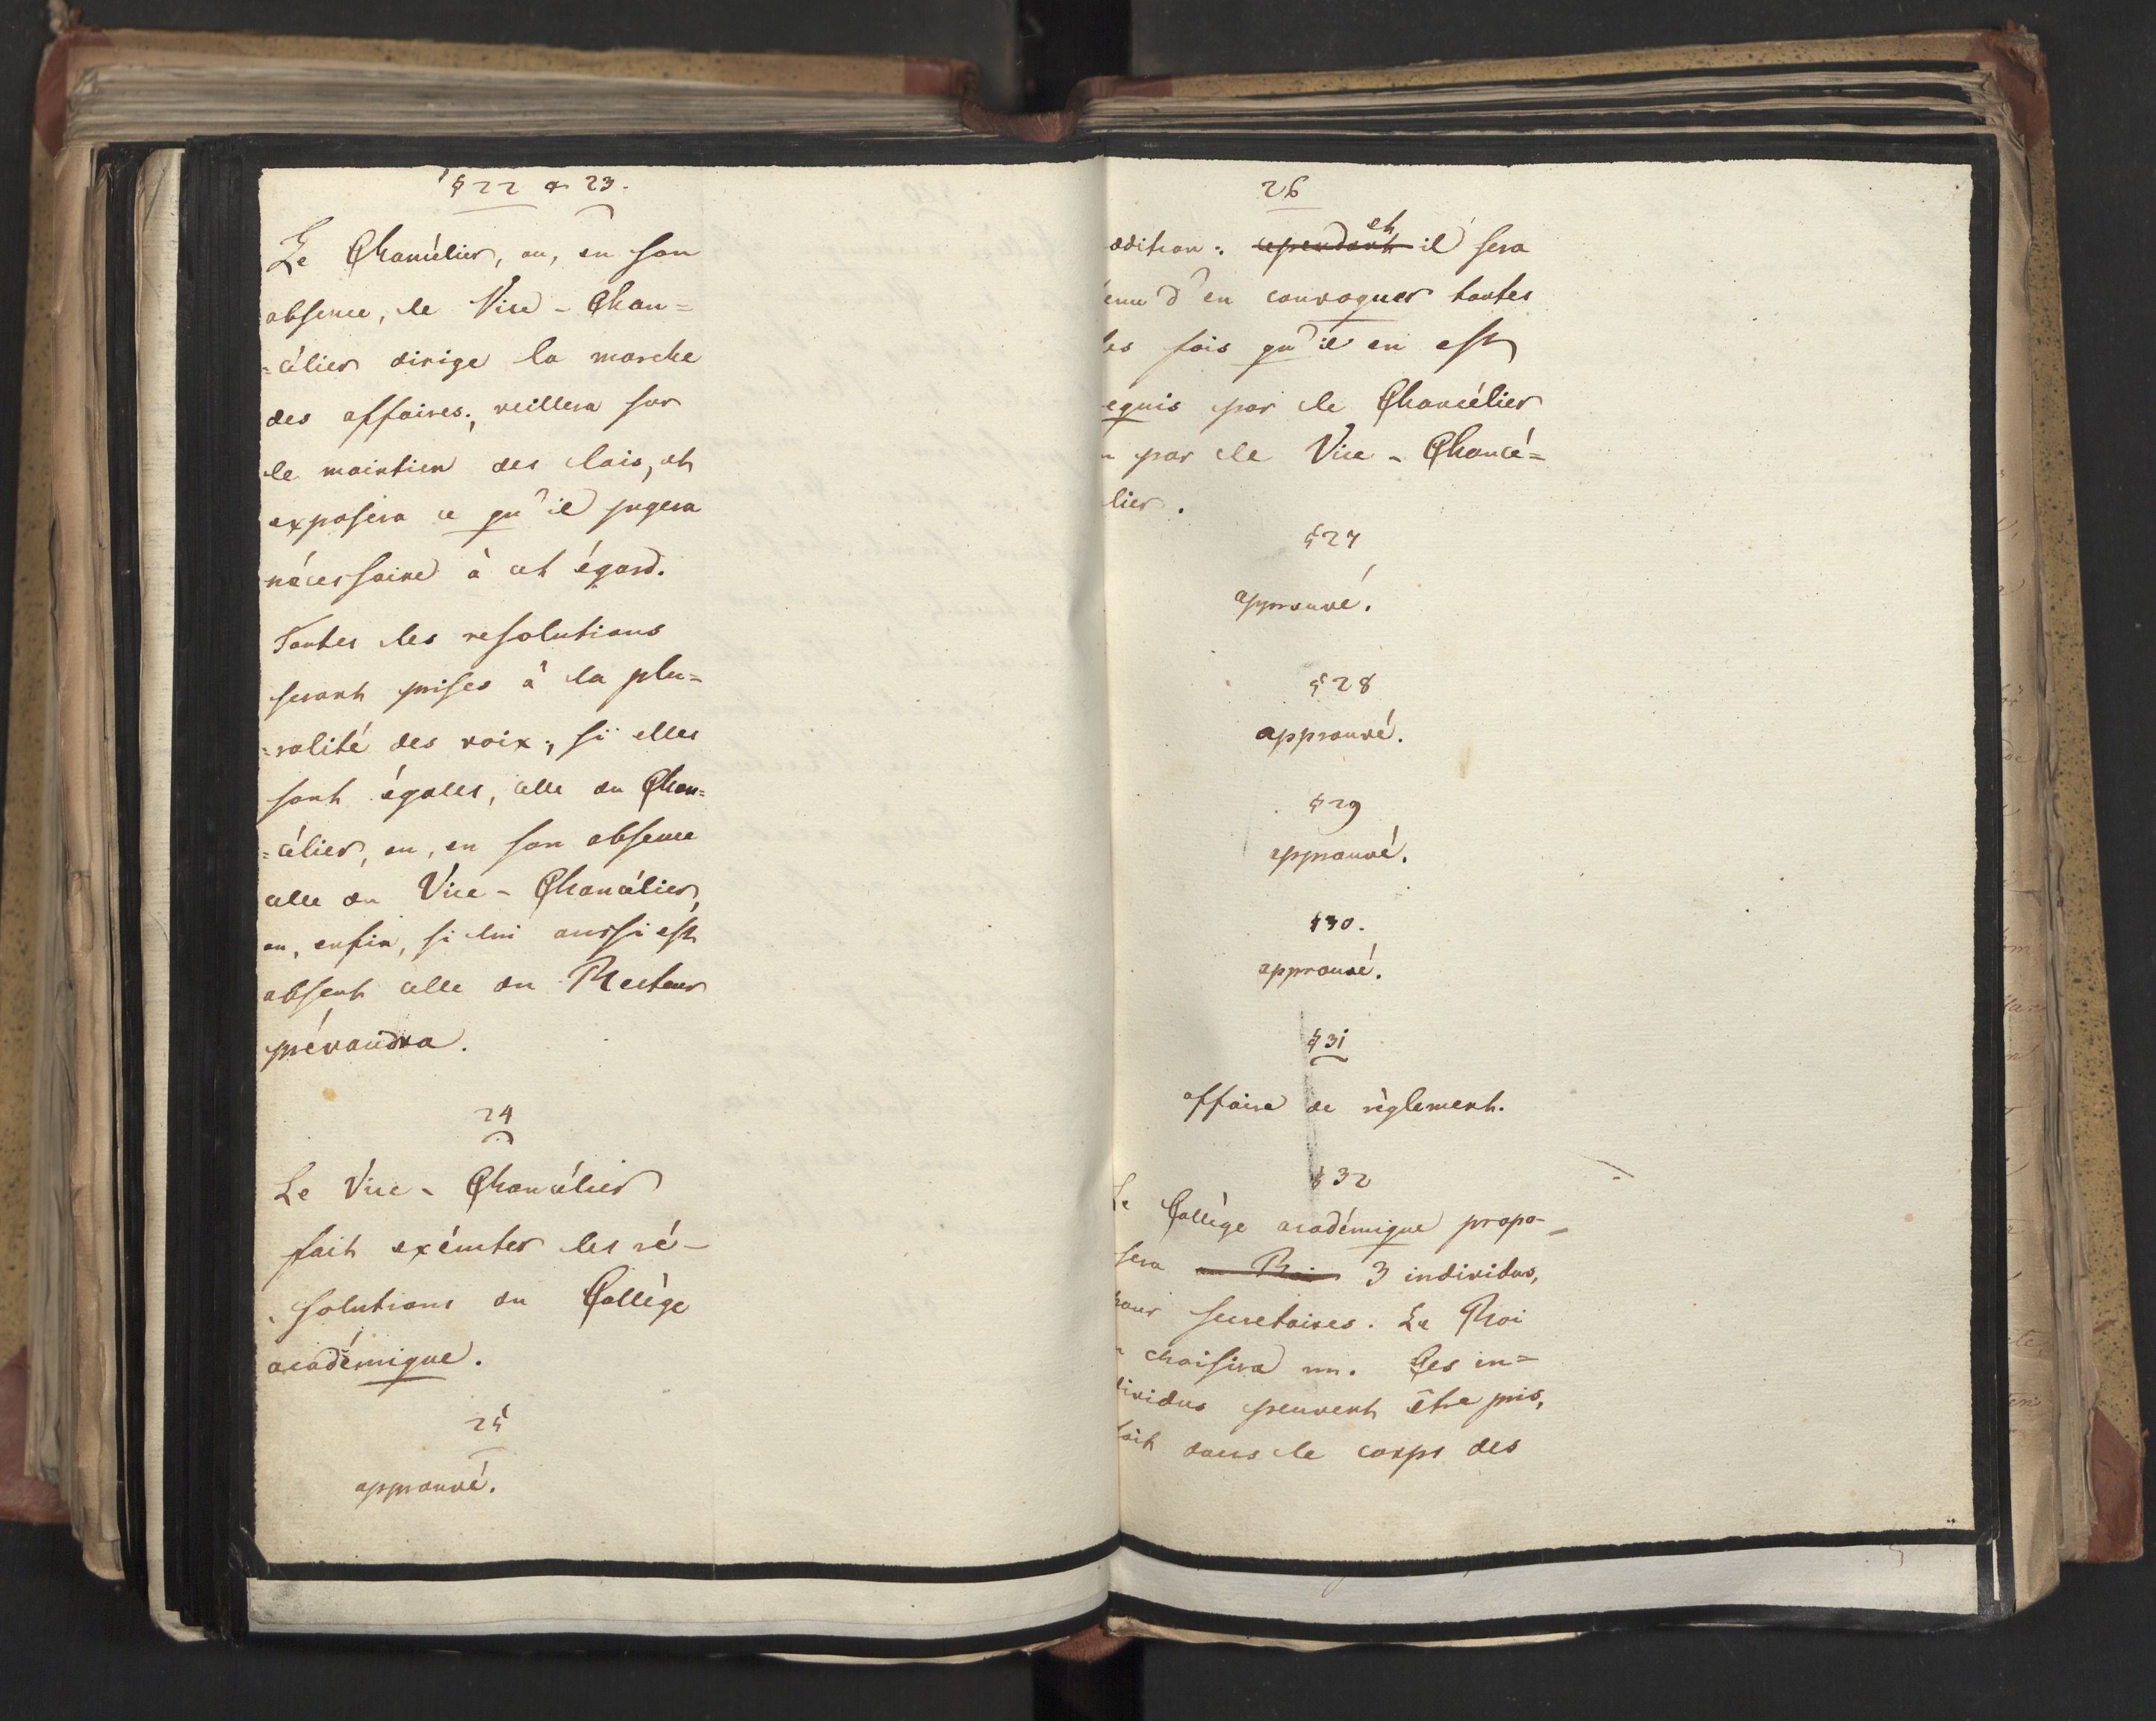 § 22 & 23.
Le Chancélier, ou, en son
absence, le Vice - Chan=
=célier dirige la marche
des affaires; veillera sur
le maintien des lois, et
exposera ce qu'il jugera
nécessaire à cet égard.
Toutes les resolutions
seront prises à la plu=
=ralité des voix; si elles
sont égales, celle du Chan=
=célier, ou, en son absence
celle du Vice - Chancélier,
ou, enfin, si lui aussi est
absent celle du Recteur
prévaudra.
24
Le Vice - Chancélier
fait exécuter les ré-
solutions du Collège
académique.
25
approuvé.
26
addition: cependant et il sera
tenu d'en convoquer toutes
les fois qu'il en est
requis par le Chancélier
ou par le Vice - Chancé=
lier.
§ 27
approuvé.
§ 28
approuvé.
§ 29
approuvé.
§ 30.
approuvé.
§ 31
affaire de règlement.
§ 32
Le Collège académique propo-
sera au Roi 3 individus,
pour secretaires. Le Roi
choisira un. Ces in=
dividus peuvent être pris,
soit dans le corps des